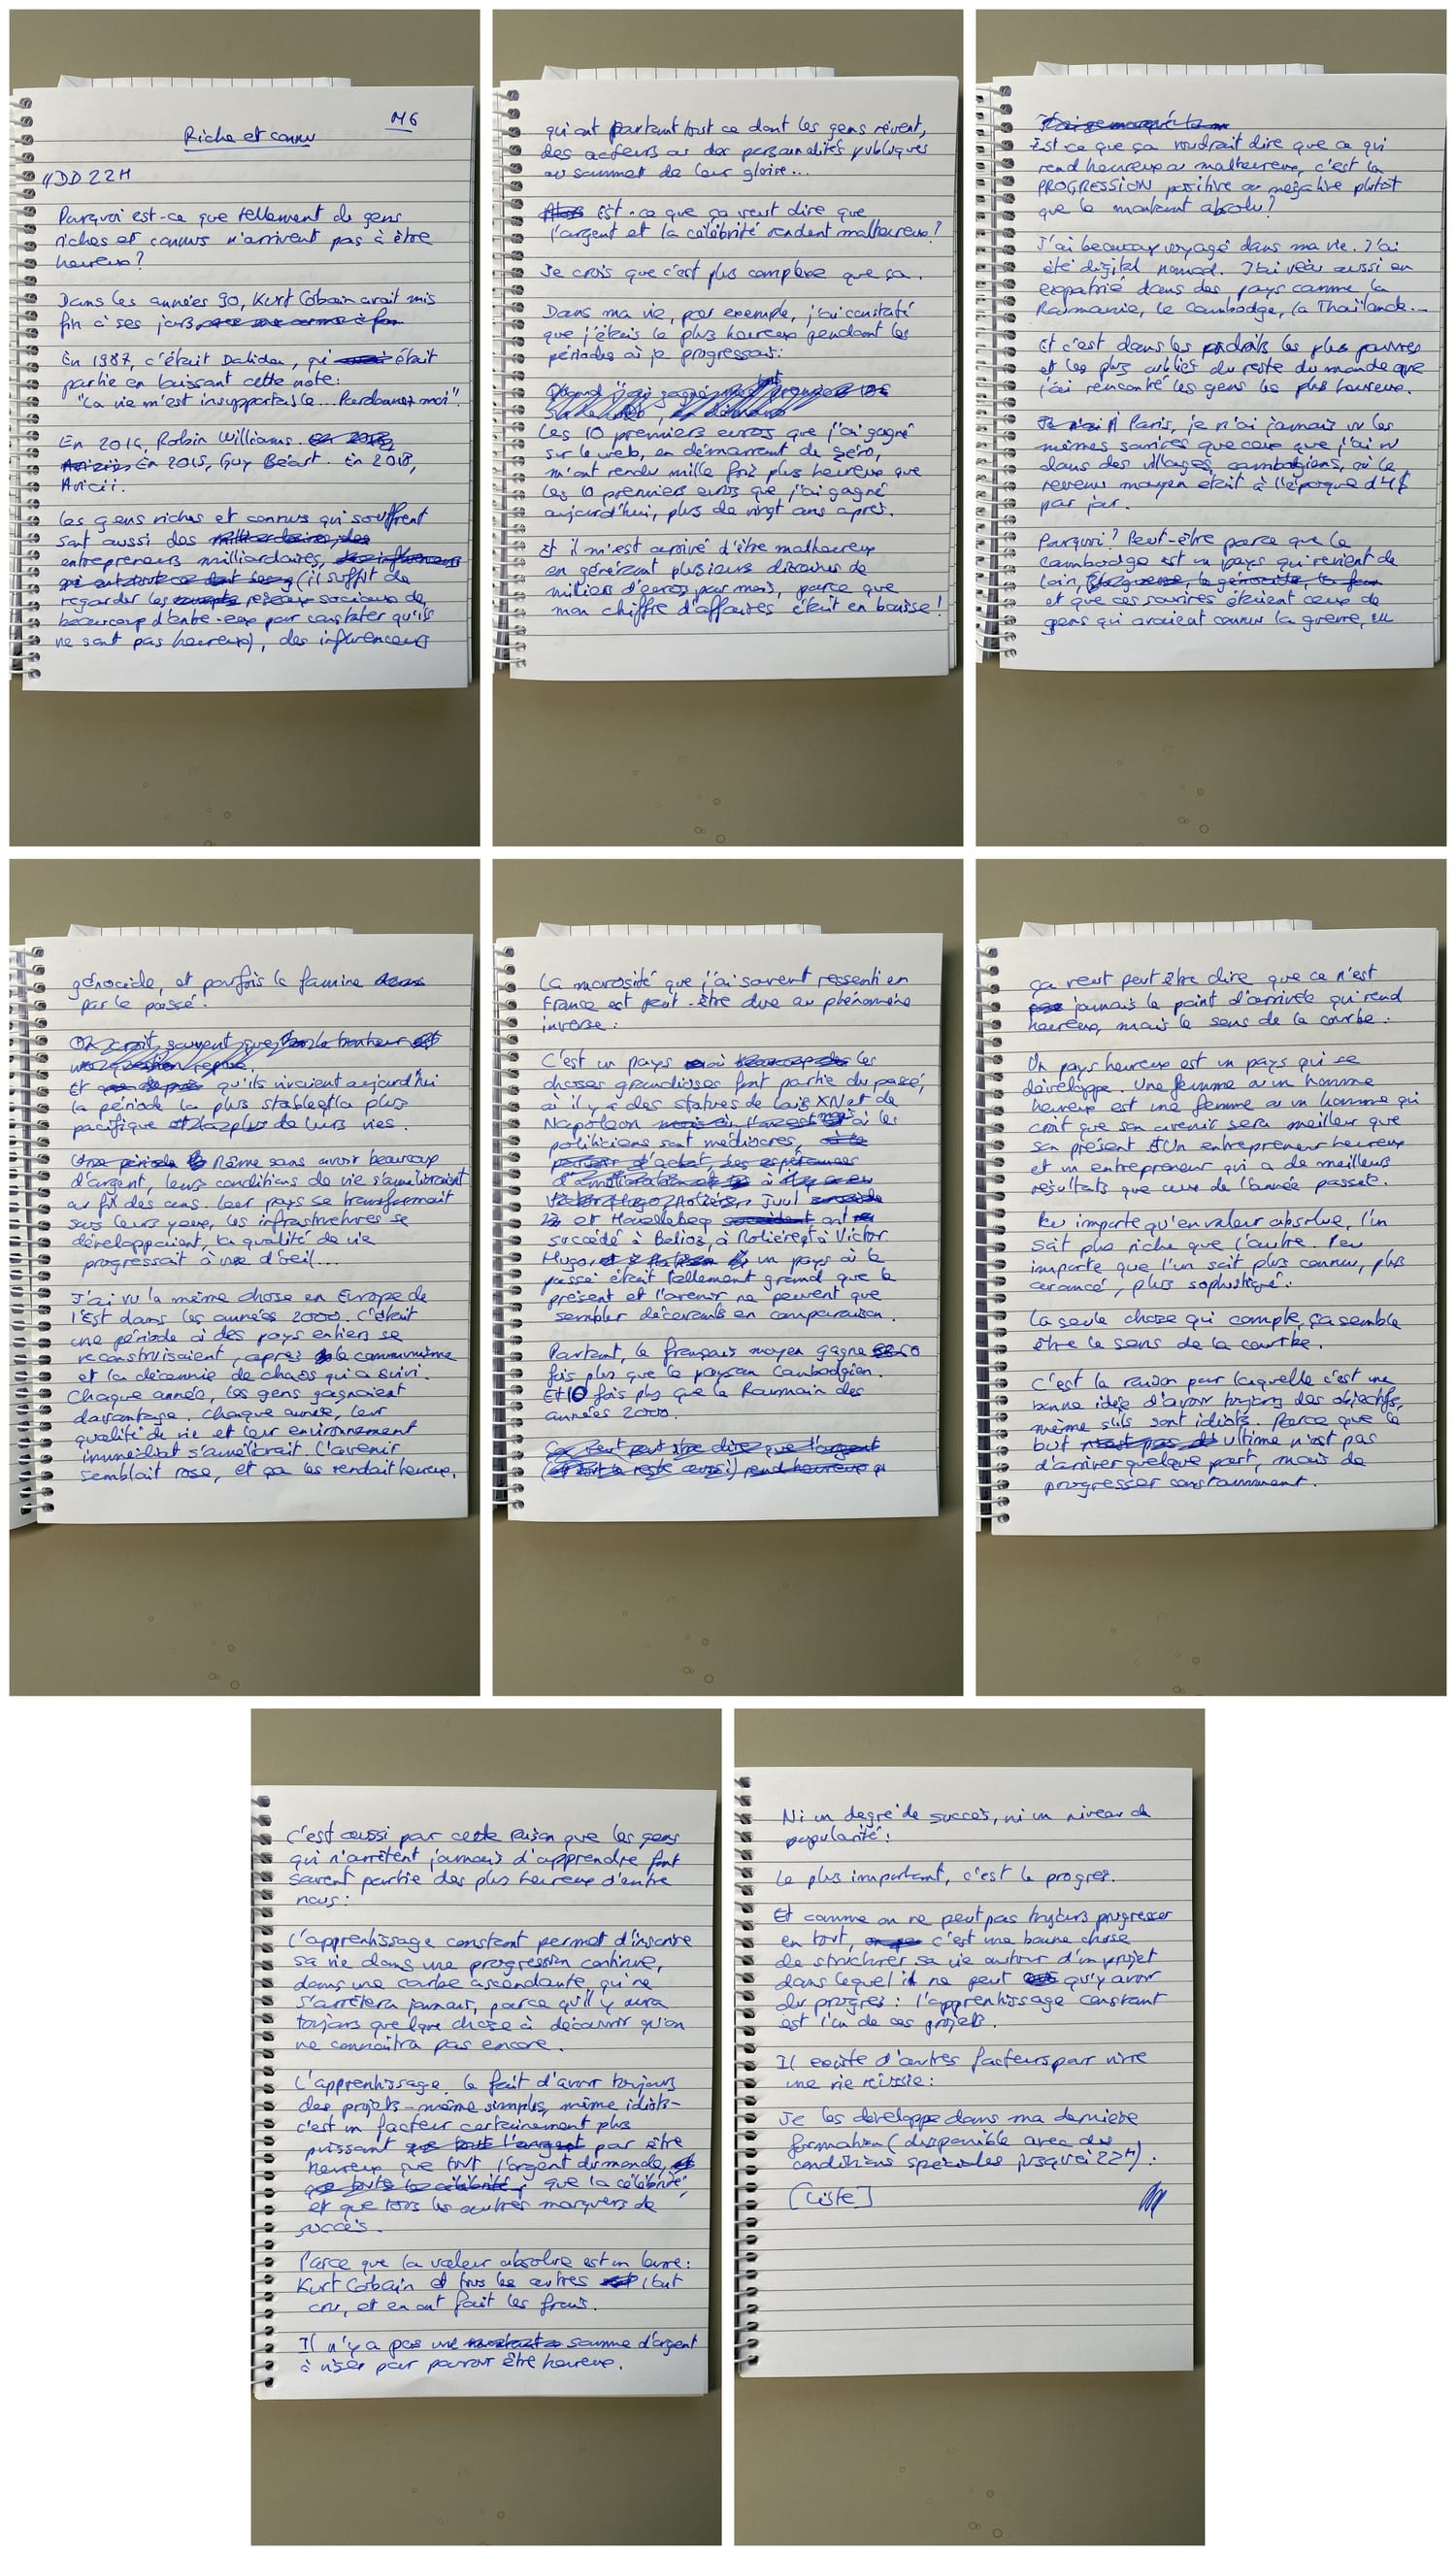 M6
Riche et connu
//DD 22H
Pourquoi est-ce que tellement de gens
riches et connus n'arrivent pas à être
heureux?
Dans les années 90, Kurt Cobain avait mis
fin à ses jours
En 1987, c'était Dalida, qui était
partie en laissant cette note:
"La vie m'est insupportable... Pardonnez moi".
En 2014, Robin Williams.
En 2015, Guy Béart. En 2018,
Avicii.
Les gens riches et connus qui souffrent
sont aussi des
entrepreneurs milliardaires,
(il suffit de
regarder les réseaux sociaux de
beaucoup d'entre-eux pour constater qu'ils
ne sont pas heureux), des influenceurs
qui ont pourtant tout ce dont les gens rêvent,
des acteurs ou des personnalités publiques
au sommet de leur gloire...
Est-ce que ça veut dire que
l'argent et la célébrité rendent malheureux?
Je crois que c'est plus complexe que ça.
Dans ma vie, par exemple, j'ai constaté
que j'étais le plus heureux pendant les
périodes où je progressais:
Les 10 premiers euros que j'ai gagné
sur le web, en démarrant de zéro,
m'ont rendu mille fois plus heureux que
les 10 premiers euros que j'ai gagné
aujourd'hui, plus de vingt ans après.
Et il m'est arrivé d'être malheureux
en générant plusieurs dizaines de
milliers d'euros par mois, parce que
mon chiffre d'affaires était en baisse!
Est-ce que ça voudrait dire que ce qui
rend heureux ou malheureux, c'est la
PROGRESSION positive ou négative plutôt
que le montant absolu?
J'ai beaucoup voyagé dans ma vie. J'ai
été digital nomad. J'ai vécu aussi en
expatrié dans des pays comme la
Roumanie, le Cambodge, la Thaïlande...
Et c'est dans les endroits les plus pauvres
et les plus oubliés du reste du monde que
j'ai rencontré les gens les plus heureux.
À Paris, je n'ai jamais vu les
mêmes sourires que ceux que j'ai vu
dans des villages cambodgiens, où le
revenu moyen était à l'époque d'4$
par jour.
Pourquoi? Peut-être parce que le
Cambodge est un pays qui revient de
loin,
et que ces sourires étaient ceux de
gens qui avaient connu la guerre, un
génocide, et parfois la famine
par le passé.
Et qu'ils vivaient aujourd'hui
la période la plus stable et la plus
pacifique de leurs vies.
Même sans avoir beaucoup
d'argent, leurs conditions de vie s'amélioraient
au fil des ans. Leur pays se transformait
sous leurs yeux, les infrastructures se
développaient, la qualité de vie
progressait à vue d'oeil...
J'ai vu la même chose en Europe de
l'est dans les années 2000. C'était
une période où des pays entiers se
reconstruisaient, après le communisme
et la décennie de chaos qui a suivi.
Chaque année, les gens gagnaient
davantage. Chaque année, leur
qualité de vie et leur environnement
immédiat s'améliorait. L'avenir
semblait rose, et ça les rendait heureux.
La morosité que j'ai souvent ressenti en
France est peut-être due au phénomène
inverse:
C'est un pays où les
choses grandioses font partie du passé,
où il y a des statues de Louis XIV et de
Napoléon mais où les
politiciens sont médiocres,
où
Jul
et Houellebecq ont
succédé à Belioz, à Molière et à Victor
Hugo, un pays où le
passé était tellement grand que le
présent et l'avenir ne peuvent que
sembler décevants en comparaison.
Pourtant, le français moyen gagne 50
fois plus que le paysan Cambodgien.
Et 10 fois plus que le Roumain des
années 2000.
Ça veut peut être dire que ce n'est
jamais le point d'arrivée qui rend
heureux, mais le sens de la courbe:
Un pays heureux est un pays qui se
développe. Une femme ou un homme
heureux est une femme ou un homme qui
croit que son avenir sera meilleur que
son présent. Un entrepreneur heureux
et un entrepreneur qui a de meilleurs
résultats que ceux de l'année passée.
Peu importe qu'en valeur absolue, l'un
soit plus riche que l'autre. Peu
importe que l'un soit plus connu, plus
avancé, plus sophistiqué:
La seule chose qui compte, ça semble
être le sens de la courbe.
C'est la raison pour laquelle c'est une
bonne idée d'avoir toujours des objectifs,
même s'ils sont idiots. Parce que le
but ultime n'est pas
d'arriver quelque part, mais de
progresser constamment.
C'est aussi par cette raison que les gens
qui n'arrêtent jamais d'apprendre font
souvent partie des plus heureux d'entre
nous:
L'apprentissage constant permet d'inscrire
sa vie dans une progression continue,
dans une courbe ascendante, qui ne
s'arrêtera jamais, parce qu'il y aura
toujours quelque chose à découvrir qu'on
ne connaîtra pas encore.
L'apprentissage, le fait d'avoir toujours
des projets - même simples, même idiots -
c'est un facteur certainement plus
puissant par être
heureux que tout l'argent du monde,
que la célébrité,
et que tous les autres marqueurs de
succès.
Parce que la valeur absolue est un leurre:
Kurt Cobain et tous les autres l'ont
cru, et en ont fait les frais.
Il n'y a pas une somme d'argent
à viser pour pouvoir être heureux.
Ni un degré de succès, ni un niveau de
popularité:
Le plus important, c'est le progrès.
Et comme on ne peut pas toujours progresser
en tout, c'est une bonne chose
de structurer sa vie autour d'un projet
dans lequel il ne peut qu'y avoir
du progrès: l'apprentissage constant
est l'un de ces projets.
Il existe d'autres facteurs pour vivre
une vie réussie:
Je les développe dans ma dernière
formation (disponible avec des
conditions spéciales jusqu'à 22H):
[Liste]